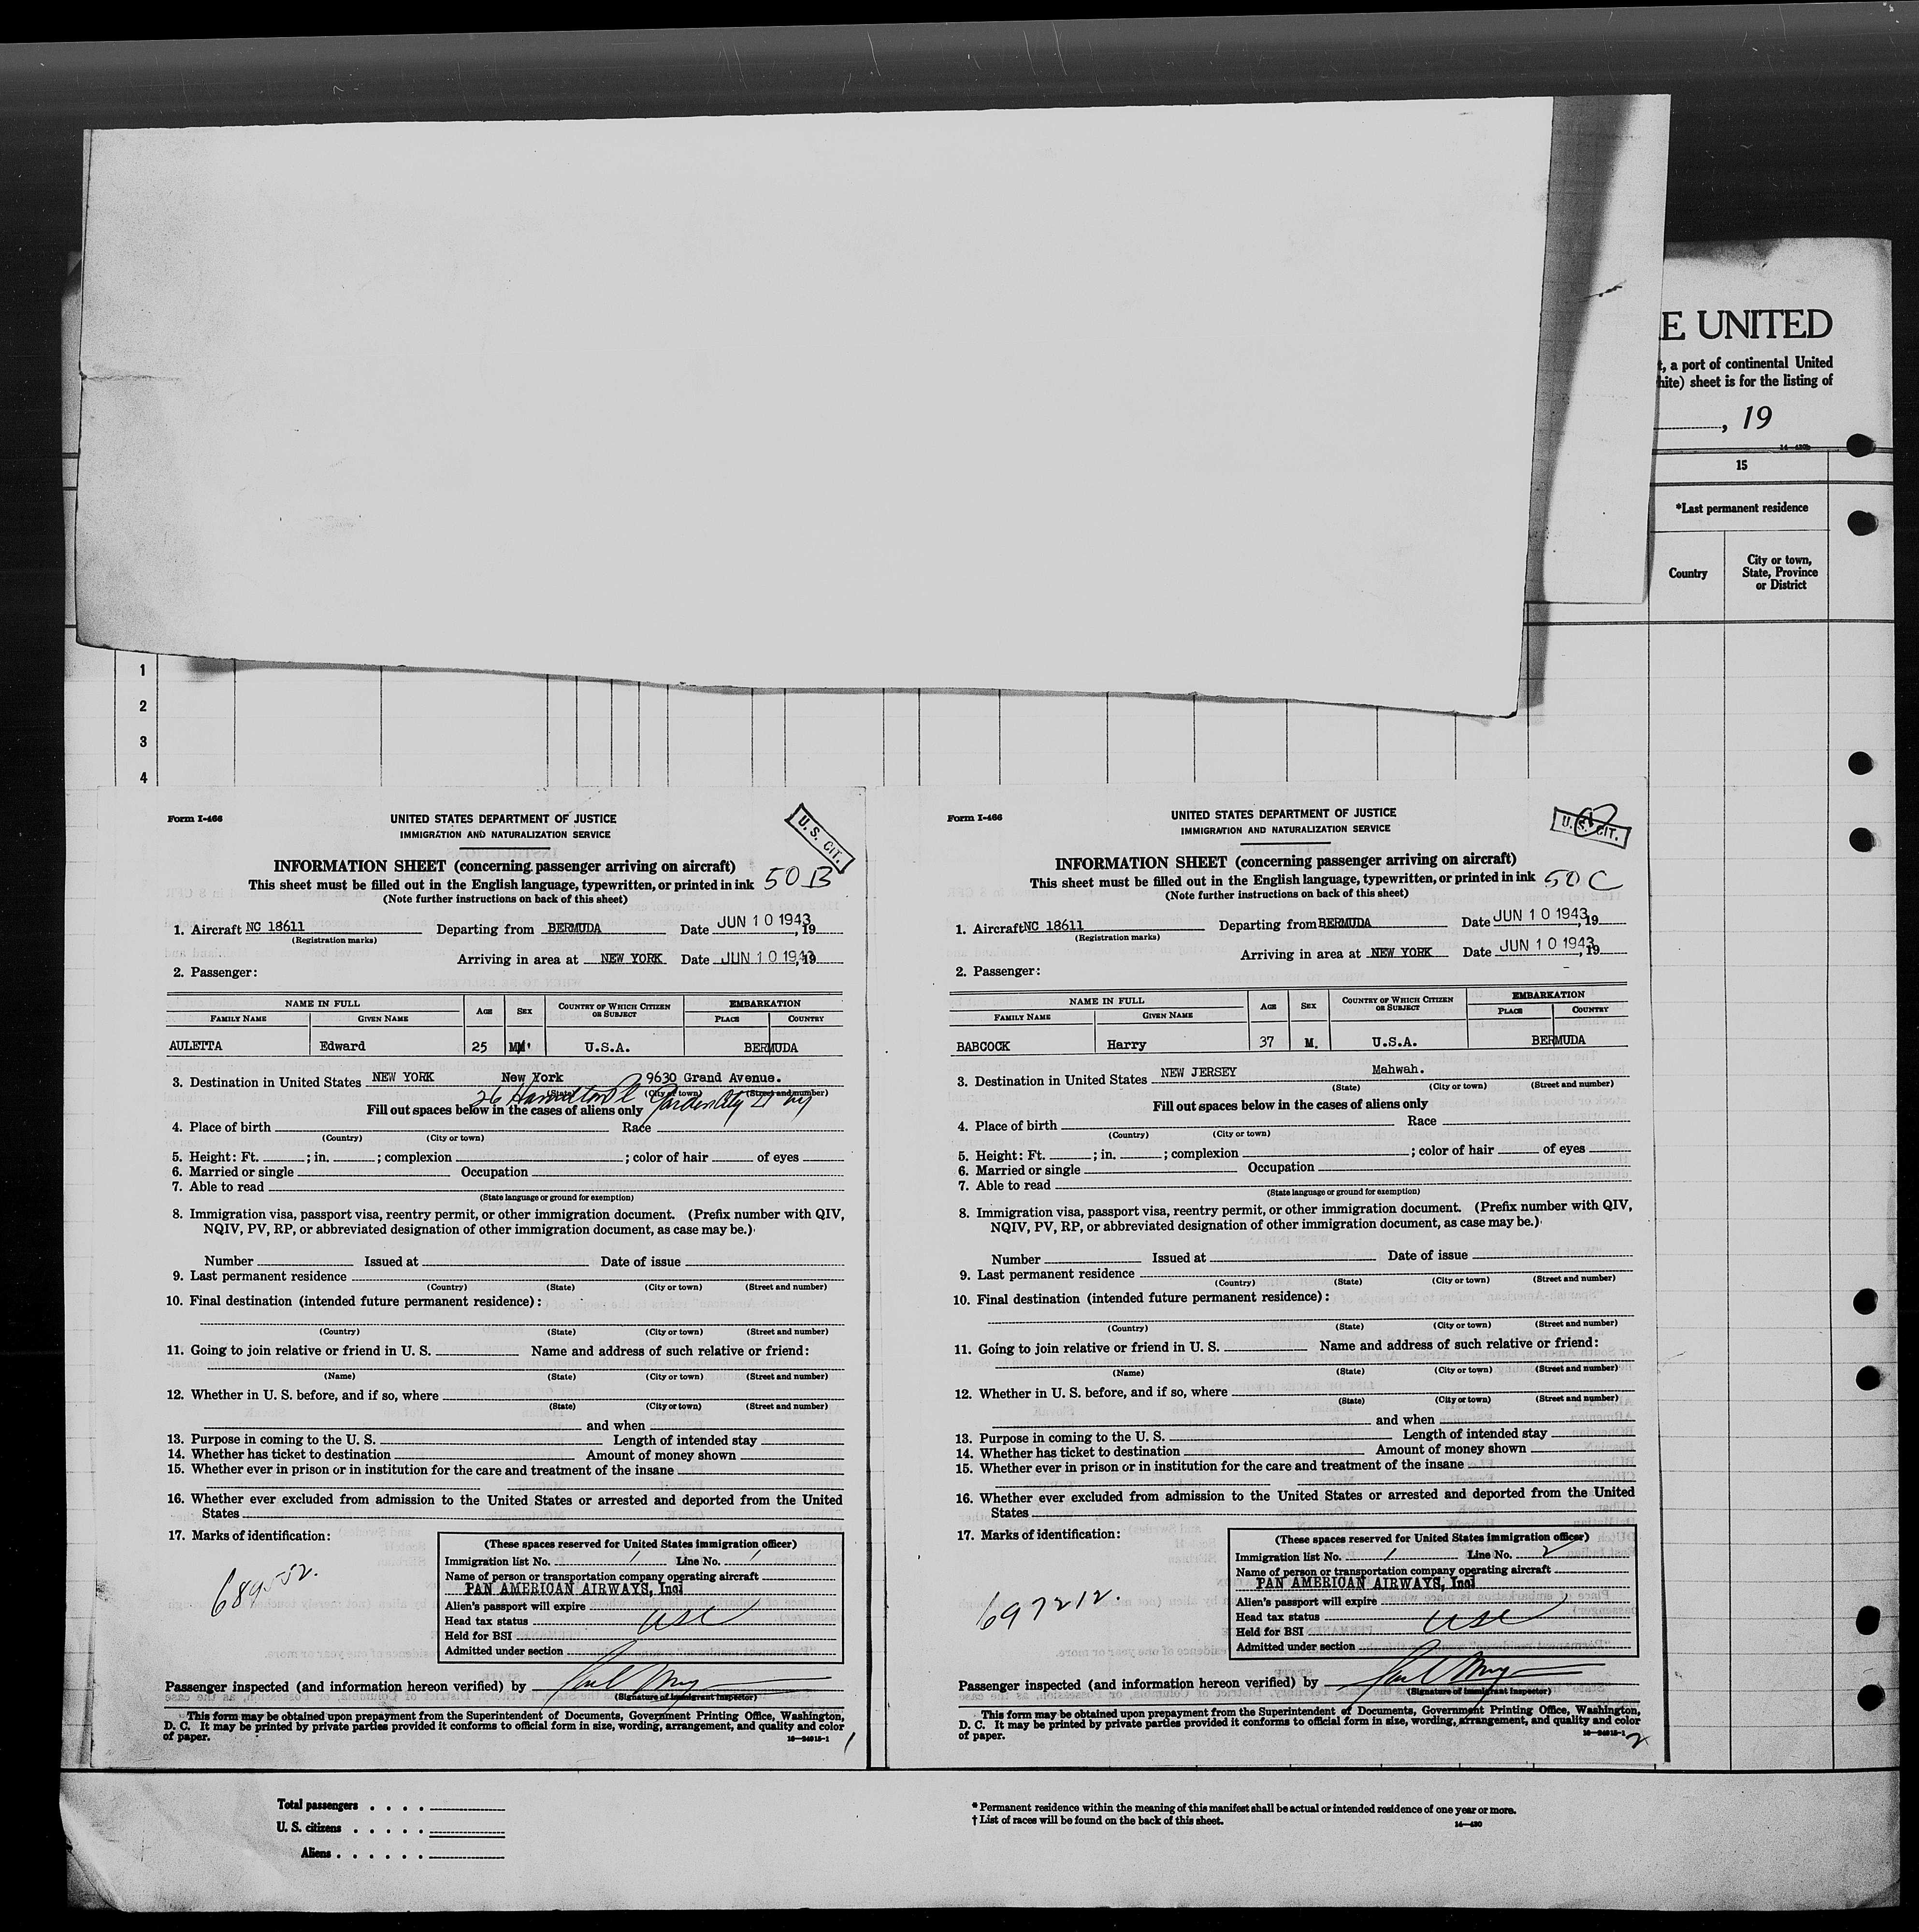 E UNITED
t, a port of continental United
hite) sheet is for the listing of
, 19
14—430b
15
*Last permanent residence
Country
City or town, State, Province or District
1
2
3
4
Form I-466
UNITED STATES DEPARTMENT OF JUSTICE
IMMIGRATION AND NATURALIZATION SERVICE
U. S. CIT.
INFORMATION SHEET (concerning passenger arriving on aircraft)
This sheet must be filled out in the English language, typewritten, or printed in ink 50 B
(Note further instructions on back of this sheet)
1. Aircraft NC 18611 Departing from BERMUDA Date JUN 10 1943, 19
(Registration marks)
Arriving in area at NEW YORK Date JUN 10 1943, 19
2. Passenger:
NAME IN FULL
FAMILY NAME GIVEN NAME AGE SEX COUNTRY OF WHICH CITIZEN OR SUBJECT EMBARKATION PLACE COUNTRY
AULETTA Edward 25 M. U.S.A. BERMUDA
3. Destination in United States NEW YORK New York 9630 Grand Avenue.
(State) (City or town) (Street and number)
26 Hamilton Pl Garden City LI NY
Fill out spaces below in the cases of aliens only
4. Place of birth Race
(Country) (City or town)
5. Height: Ft. ; in. ; complexion ; color of hair of eyes
6. Married or single Occupation
7. Able to read
(State language or ground for exemption)
8. Immigration visa, passport visa, reentry permit, or other immigration document. (Prefix number with QIV,
NQIV, PV, RP, or abbreviated designation of other immigration document, as case may be.)
Number Issued at Date of issue
9. Last permanent residence
(Country) (State) (City or town) (Street and number)
10. Final destination (intended future permanent residence):
(Country) (State) (City or town) (Street and number)
11. Going to join relative or friend in U. S. Name and address of such relative or friend:
(Name) (State) (City or town) (Street and number)
12. Whether in U. S. before, and if so, where
(State) (City or town) (Street and number)
and when
13. Purpose in coming to the U. S. Length of intended stay
14. Whether has ticket to destination Amount of money shown
15. Whether ever in prison or in institution for the care and treatment of the insane
16. Whether ever excluded from admission to the United States or arrested and deported from the United
States
17. Marks of identification:
689552.
(These spaces reserved for United States immigration officer)
Immigration list No. 1 Line No. 1
Name of person or transportation company operating aircraft
PAN AMERICAN AIRWAYS, Inc
Alien's passport will expire
Head tax status USC
Held for BSI
Admitted under section
Passenger inspected (and information hereon verified) by
(Signature of Immigrant Inspector)
This form may be obtained upon prepayment from the Superintendent of Documents, Government Printing Office, Washington,
D. C. It may be printed by private parties provided it conforms to official form in size, wording, arrangement, and quality and color
of paper.
16—24915-1
1
Form I-466
UNITED STATES DEPARTMENT OF JUSTICE
IMMIGRATION AND NATURALIZATION SERVICE
U. S. CIT.
INFORMATION SHEET (concerning passenger arriving on aircraft)
This sheet must be filled out in the English language, typewritten, or printed in ink 50 C
(Note further instructions on back of this sheet)
1. Aircraft NC 18611 Departing from BERMUDA Date JUN 10 1943, 19
(Registration marks)
Arriving in area at NEW YORK Date JUN 10 1943, 19
2. Passenger:
NAME IN FULL
FAMILY NAME GIVEN NAME AGE SEX COUNTRY OF WHICH CITIZEN OR SUBJECT EMBARKATION PLACE COUNTRY
BABCOCK Harry 37 M. U.S.A. BERMUDA
3. Destination in United States NEW JERSEY Mahwah.
(State) (City or town) (Street and number)
Fill out spaces below in the cases of aliens only
4. Place of birth Race
(Country) (City or town)
5. Height: Ft. ; in. ; complexion ; color of hair of eyes
6. Married or single Occupation
7. Able to read
(State language or ground for exemption)
8. Immigration visa, passport visa, reentry permit, or other immigration document. (Prefix number with QIV,
NQIV, PV, RP, or abbreviated designation of other immigration document, as case may be.)
Number Issued at Date of issue
9. Last permanent residence
(Country) (State) (City or town) (Street and number)
10. Final destination (intended future permanent residence):
(Country) (State) (City or town) (Street and number)
11. Going to join relative or friend in U. S. Name and address of such relative or friend:
(Name) (State) (City or town) (Street and number)
12. Whether in U. S. before, and if so, where
(State) (City or town) (Street and number)
and when
13. Purpose in coming to the U. S. Length of intended stay
14. Whether has ticket to destination Amount of money shown
15. Whether ever in prison or in institution for the care and treatment of the insane
16. Whether ever excluded from admission to the United States or arrested and deported from the United
States
17. Marks of identification:
697212.
(These spaces reserved for United States immigration officer)
Immigration list No. 1 Line No. 2
Name of person or transportation company operating aircraft
PAN AMERICAN AIRWAYS, Inc
Alien's passport will expire
Head tax status USC
Held for BSI
Admitted under section
Passenger inspected (and information hereon verified) by
(Signature of Immigrant Inspector)
This form may be obtained upon prepayment from the Superintendent of Documents, Government Printing Office, Washington,
D. C. It may be printed by private parties provided it conforms to official form in size, wording, arrangement, and quality and color
of paper.
16—24915-1
2
Total passengers . . . .
U. S. citizens . . . . .
Aliens . . . . . .
* Permanent residence within the meaning of this manifest shall be actual or intended residence of one year or more.
† List of races will be found on the back of this sheet.
14—430